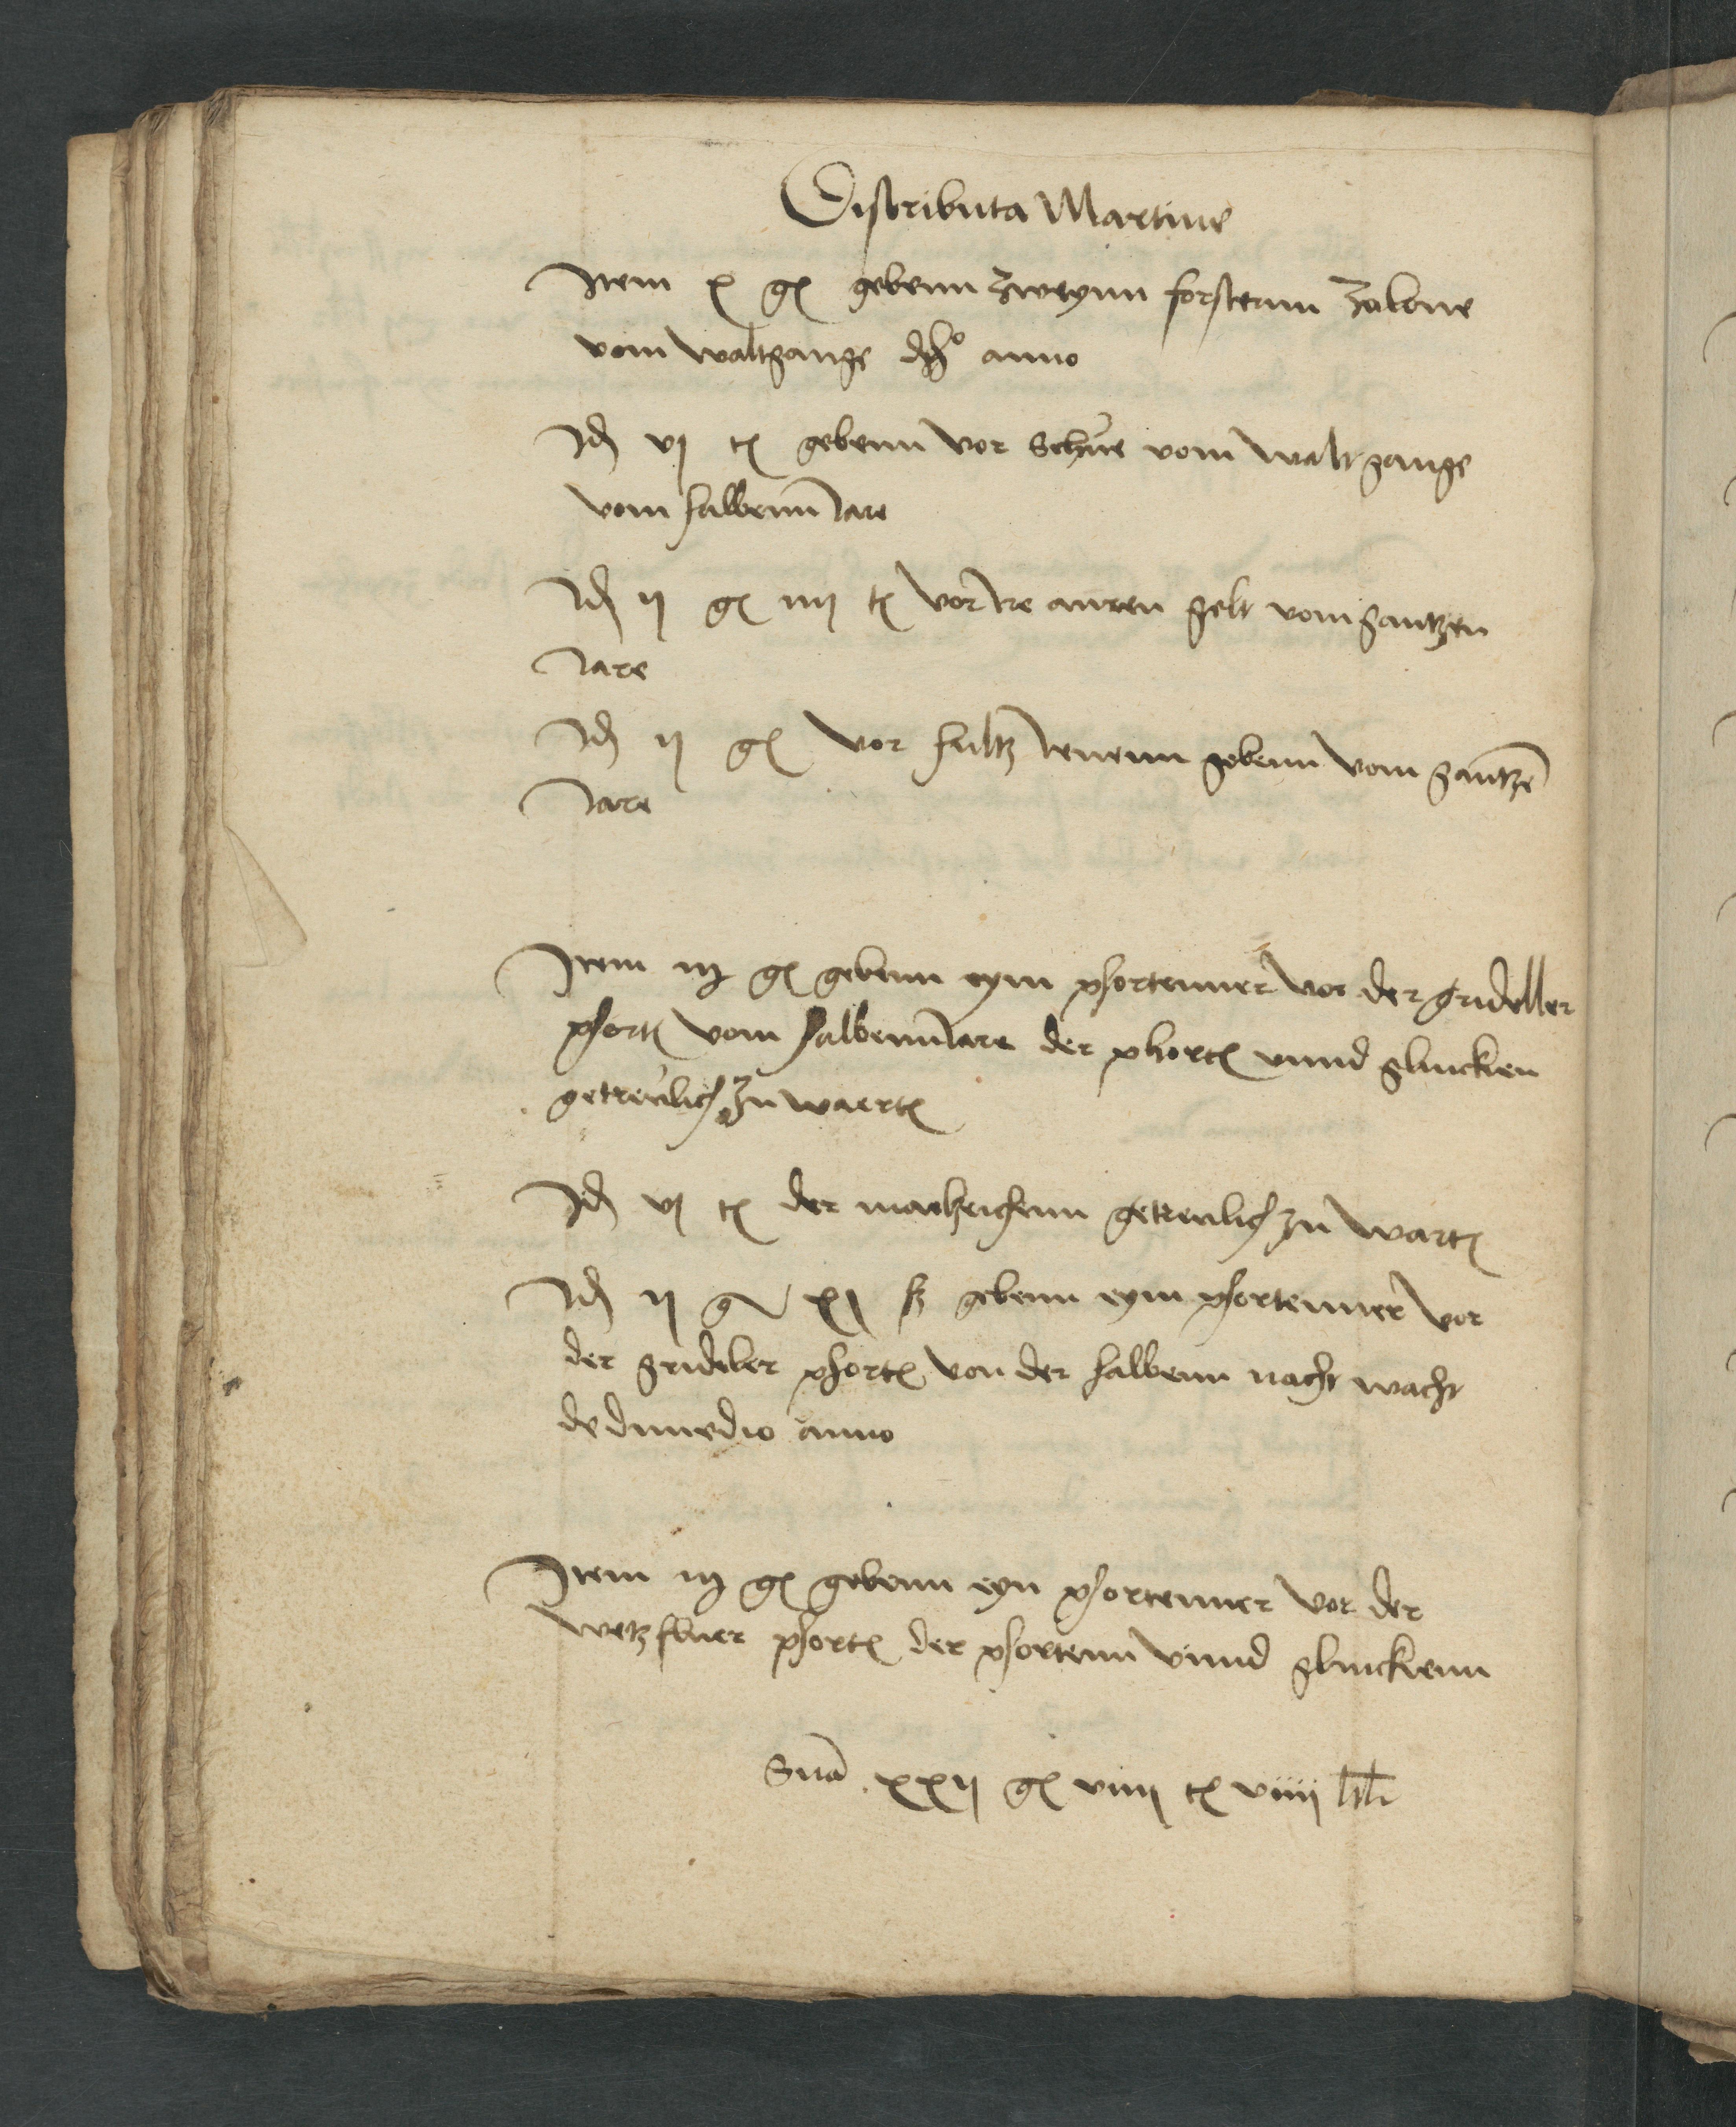 Distributa Martine
Item x gl gebenn zweynn forsternn zulone
vom waltgange dicto anno
Id vj tl gebenn vor schue vom waltgange
vom halbenn Jare
Id ij gl iiij tl vor ire anten gelt vom gantzen
Jare
Id ij gl vor hultz lenenn gebenn vom gantzē
Jare
Item iij gl gebenn eym phortenner vor der grideller
phortē vom halbenn Jare der phortē vnnd gluncken
getreulich zu waertē
Id vj tl der marheichenn getreulich zu wartē
Id ij g xj ß gebenn eym phortenner vor
der grideler phortē von der halbenn nacht wacht
de dimedio anno
Item iij gl gebenn eyn phortenner vor der
wetzfluer phortē der phortenn vnnd gluckenn
Sūa xxij gl viiij tl viiij hllr